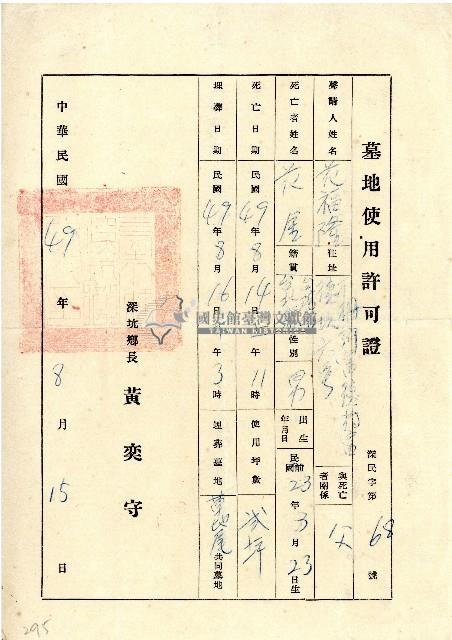 墓地使用許可證
深民字第 68 號
聲請人姓名 范 隆 住址
與死亡者關係 父
死亡者姓名 范 籍貫 性別 男 出生年月日 民國前 23 年 3 月 23 日生
死亡日期 民國 49 年 8 月 14 日 午 11 時 使用坪數 弍坪
埋葬日期 民國 49 年 8 月 16 日 午 3 時 埋葬墓地 共同墓地
深坑鄉長 黃奕守
中華民國 49 年 8 月 15 日
國史館臺灣文獻館
TAIWAN HISTORICA
295